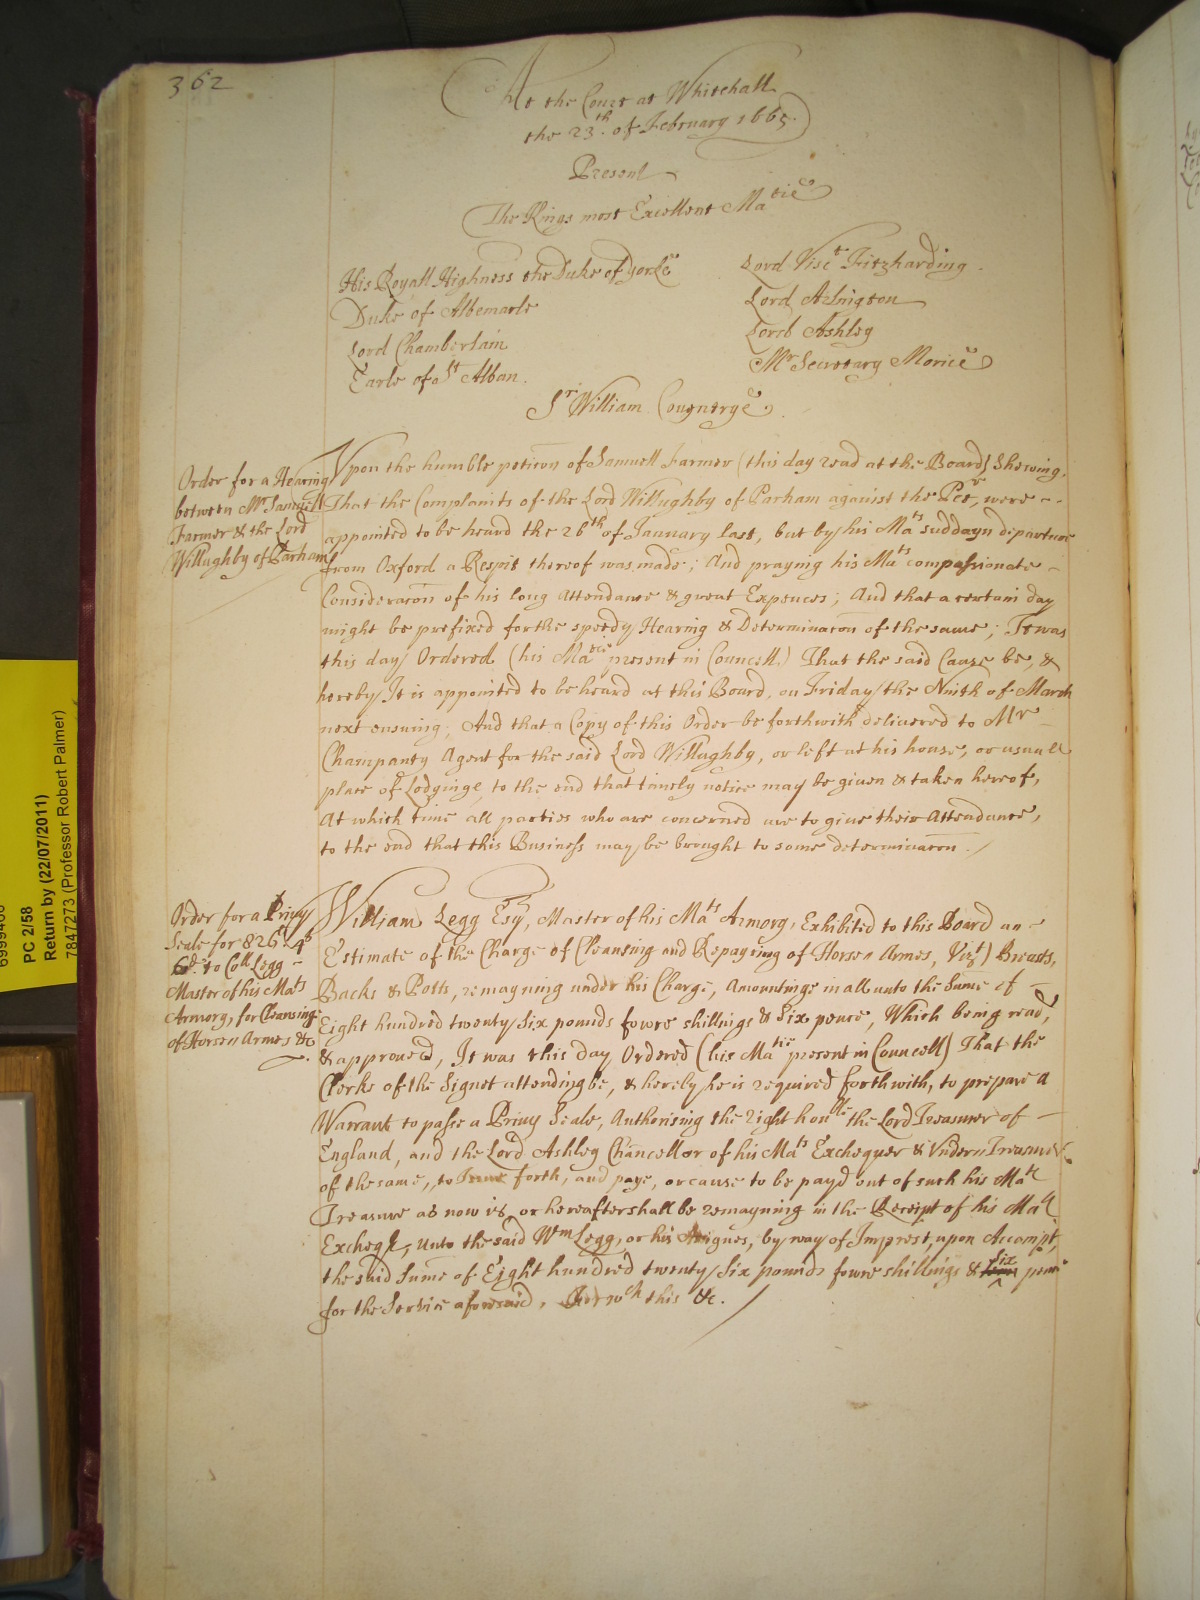 362
At the Court at Whitehall
the 23th. of February 1665.
Present
The Kings most Excellent Matie
His Royall Highness the Duke of Yorke
Duke of Albemarle
Lord Chamberlain
Earle of St Alban.
Lord Visct Fitzharding.
Lord Arlington
Lord Ashley
Mr Secretary Morice
Sr William Couentrye.
Order for a Hearing
between Mr Samuell
Farmer & the Lord
Willughby of Parham
Vpon the humble peticon of Samuell Farmer (this day read at the Board) Shewing,
That the Complaints of the Lord Willughby of Parham against the Petr, were --
appointed to be heard the 26th of January last, but by his Mats suddayn departure
from Oxford a Respit thereof was made; And praying his Mats compassionate -
Consideracon of his long Attendance & great Expences; And that a certain day
might be prefixed for the speedy Hearing & Determinacon of the same; It was
this day Ordered (his Matie present in Councell) That the said Cause be, &
hereby It is appointed to be heard at this Board, on Friday the Ninth of March
next ensuing; And that a Copy of this Order be forthwith delivered to Mr -
Champanty Agent for the said Lord Willughby, or left at his house, or usuall
place of Lodginge, to the end that timely notice may be given & taken hereof,
At which time all parties who are concerned are to give their Attendance,
to the end that this Business may be brought to some determinacon. /
Order for a Privy
Seale for 826l. 4s
6d. to Coll Legg -
Master of his Mats
Armory, for Cleansing
of Horsen Armes &c
William Legg Esqr, Master of his Mats Armory, Exhibited to this Board an -
Estimate of the Charge of Cleansing and Repayring of Horsen Armes, Vizt) Breasts,
Backs & Potts, remayning under his Charge, Amountinge in all unto the Sume of -
Eight hundred twenty six pounds fowre shillings & Six pence, Which being read,
& approued, It was this day Ordered (his Matie present in Councell) That the
Clerke of the Signet attending be, & hereby he is required forthwith, to prepare a
Warrant to passe a Privy Seale, Authorising the right honble the Lord Treasurer of -
England, and the Lord Ashley Chancellor of his Mats Exchequer & Vnder Treasurer
of the same, to Issue forth, and paye, or cause to be payd out of such his Mats
Treasure as now is, or hereafter shall be remayning in the Receipt of his Mats
Excheqr, unto the said Wm Legg, or his Assignes, by way of Imprest, upon Accompt,
the said Sume of Eight hundred twenty six pounds fowre shillings & six pence
for the Service aforesaid, And wch this &c. /
PC 2/58
Return by (22/07/2011)
7847273 (Professor Robert Palmer)